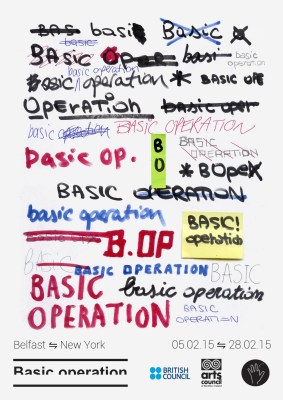 BAS basis Basic
basic
BASIC OPer basi
basic operation
basic operation
Basic operation * BASIC OPE
OPERATiON basic oper
basic operation BASIC OPERATION
BASIC OPERATION
basic OP. B O
* BOpeX
BASIC OPERATION
basic operation BASIC! operatio
B.OP
BASIC BASIC OPERATION BASIC
BASIC basic operation
OPERATION BASIC OPERATION
Belfast ⇋ New York 05.02.15 ⇋ 28.02.15
Basic operation BRITISH COUNCIL arts council